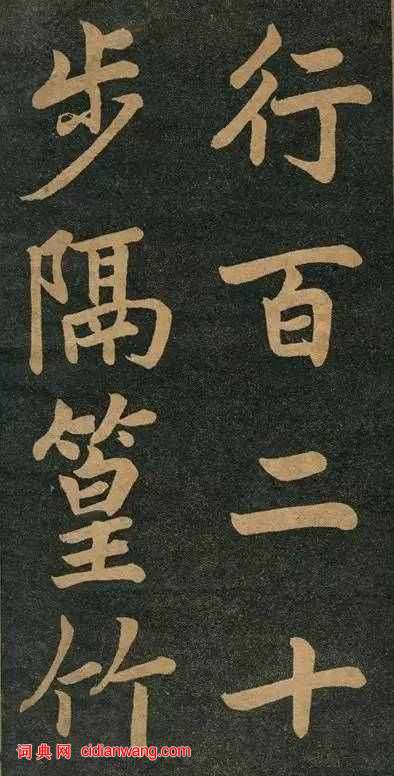 行百二十
步隔篁竹
词典网 cidianwang.com